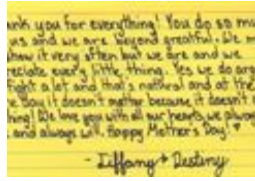 nk you for everything! You do so mu
us and we are beyond greatful. We m
how it very often but we are and we
reciate every little thing. Yes we do arg
fight a lot and that's natural and at the
e Day it doesn't matter because it doesn't
hing! We love you with all our hearts, we always
and always will. Happy Mother's Day!
- Tiffany + Destiny